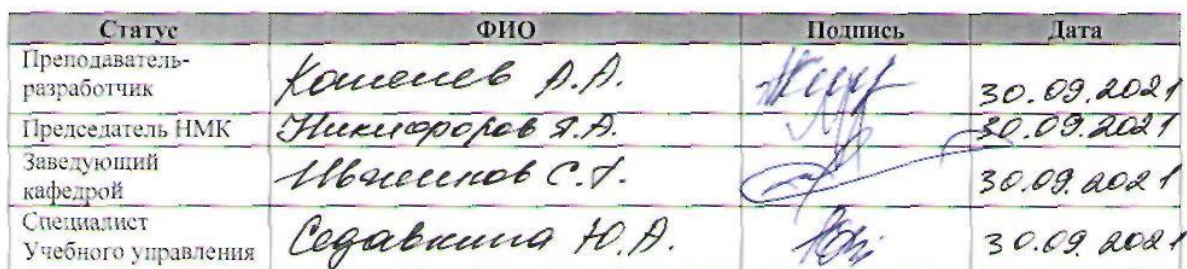 Статус ФИО Подпись Дата
Преподаватель-
разработчик Кошелев А.А. 30.09.2021
Председатель НМК Никифоров Я.А. 30.09.2021
Заведующий
кафедрой С.Г. 30.09.2021
Специалист
Учебного управления Седавкина Ю.А. 30.09.2021